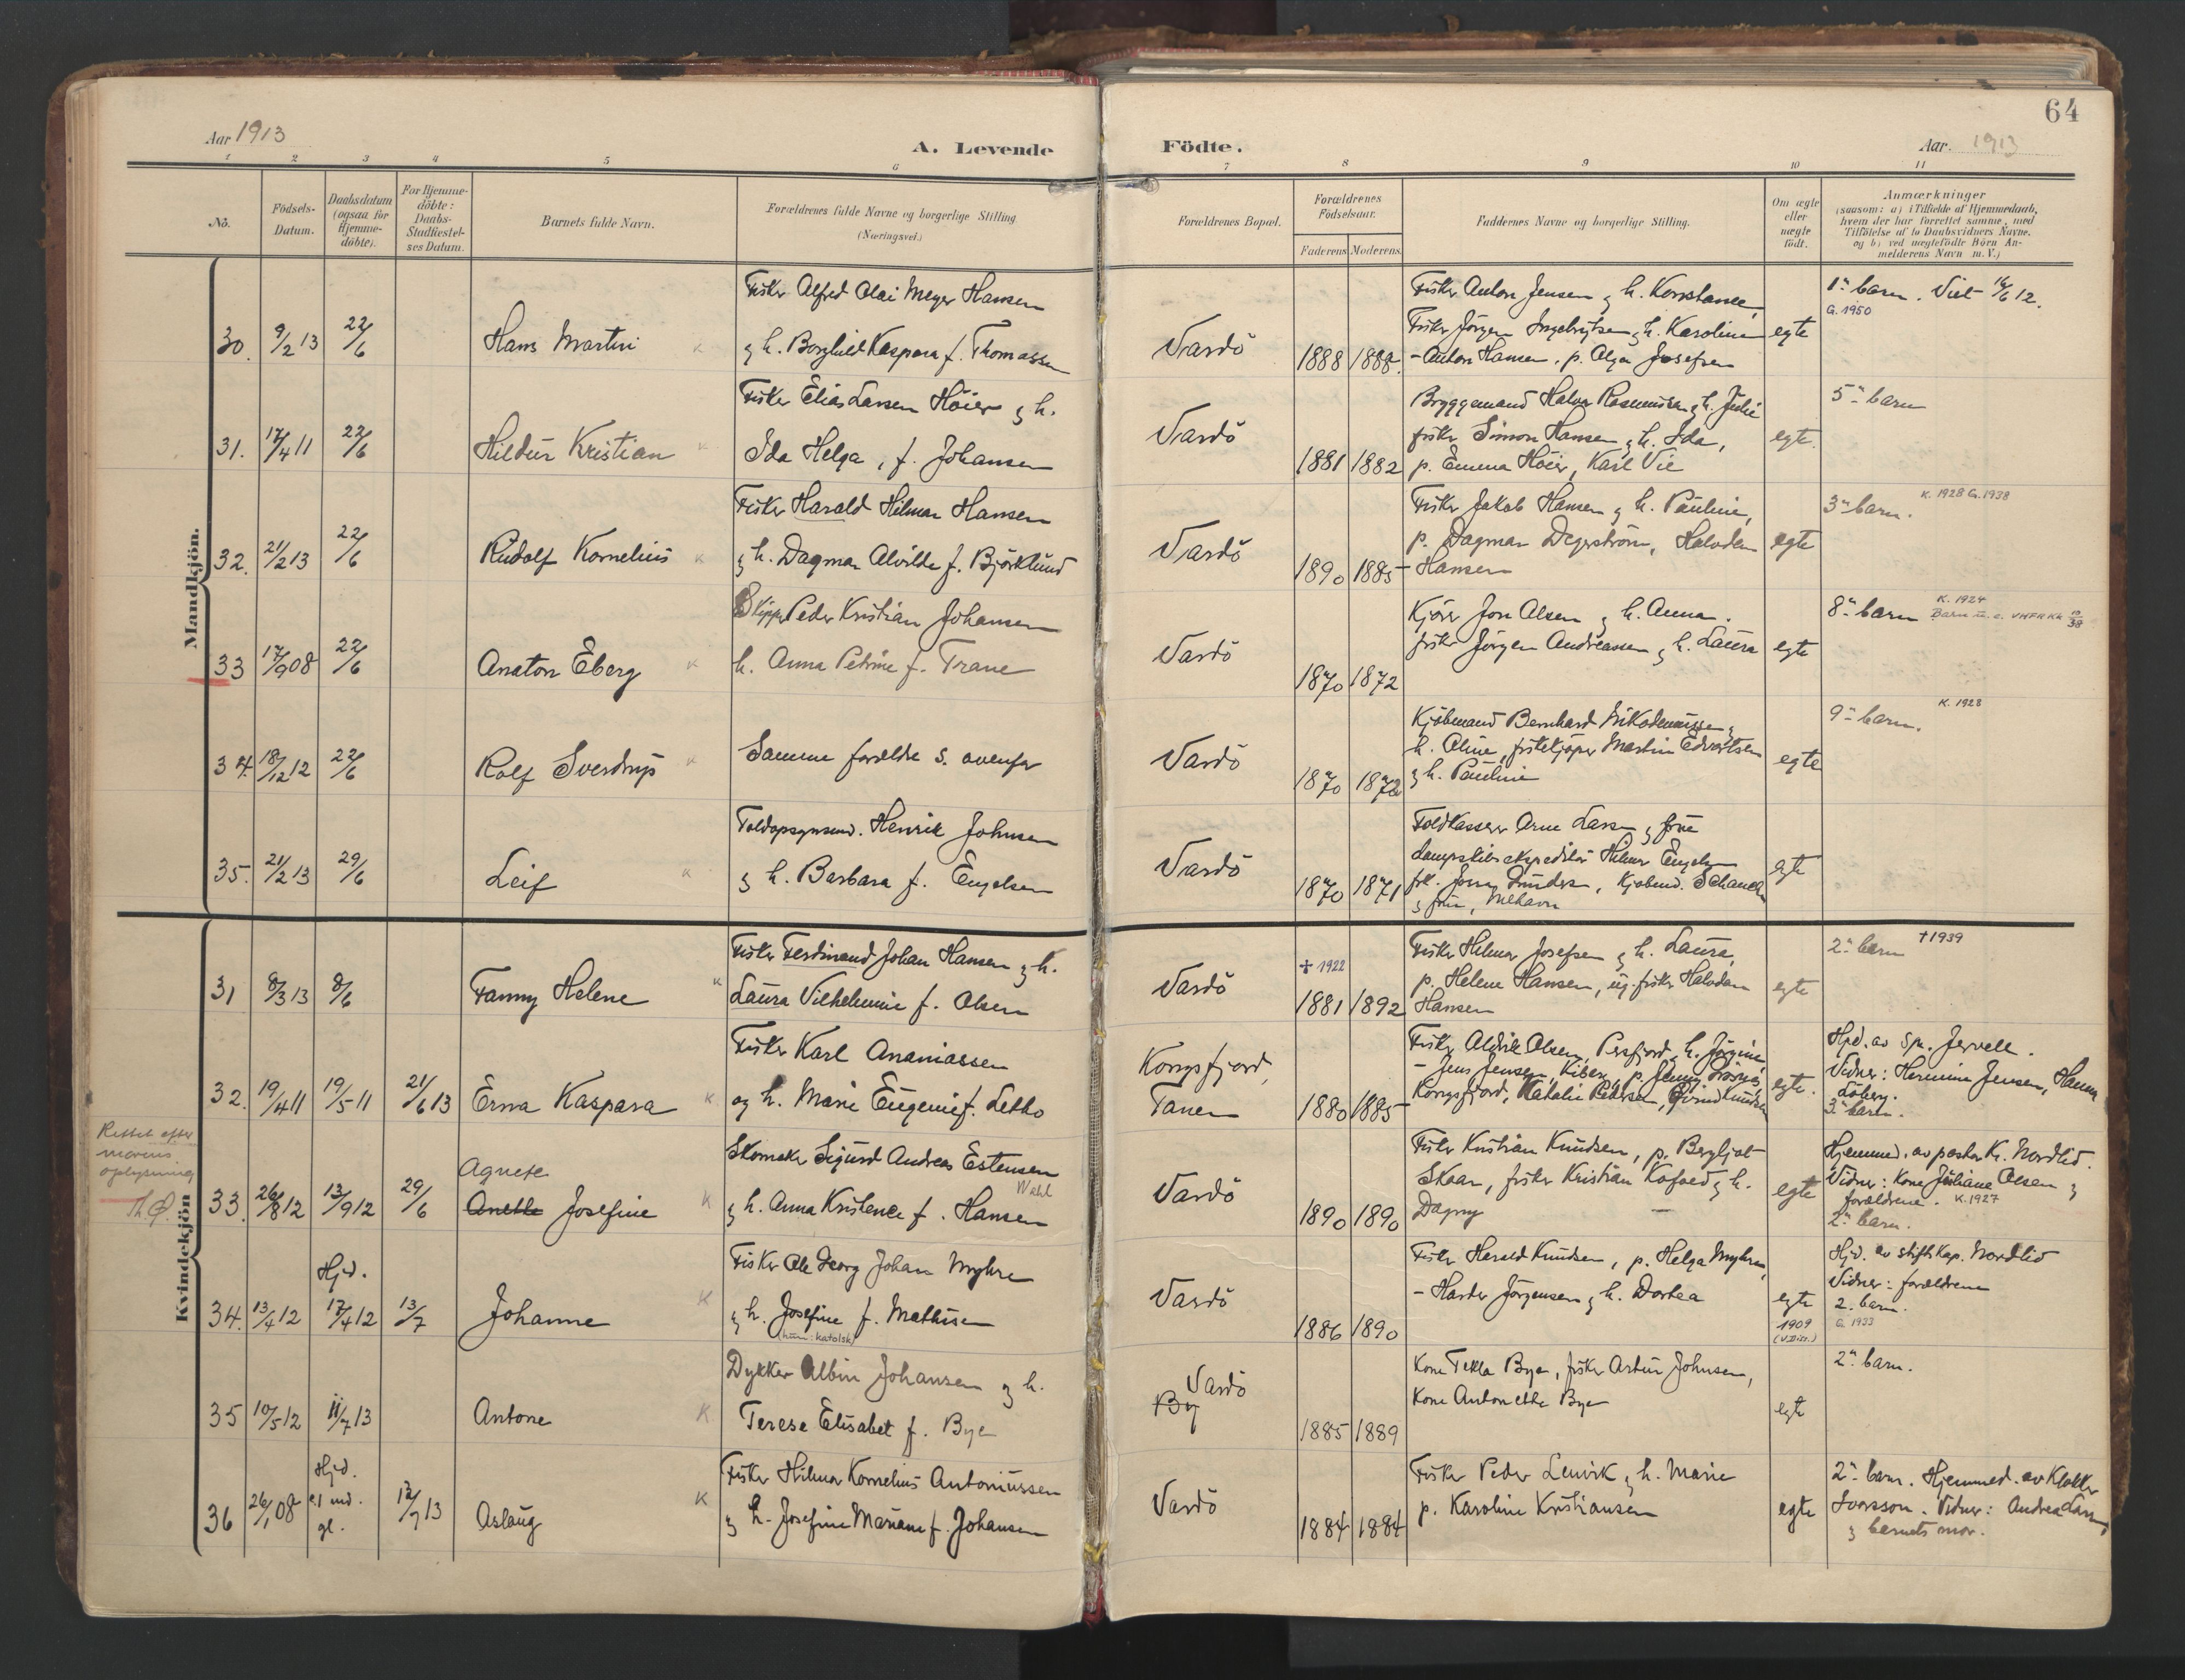 64
Aar 1913
A. Levende Födte.
Aar. 1913
1 2 3 4 5 6 7 8 9 10 11
No.
Födsels-Datum.
Daabsdatum (ogsaa for Hjemme-döbte).
For Hjemme-döbte: Daabs-Stadfæstel-ses Datum.
Barnets fulde Navn.
Forældrenes fulde Navne og borgerlige Stilling.
(Næringsvei.)
Forældrenes Bopæl.
Forældrenes Födselsaar.
Faderens Moderens
Faddernes Navne og borgerlige Stilling.
Om ægte eller uægte födt.
Anmærkninger
(saasom: a) i Tilfælde af Hjemmedaab,
hvem der har forrettet samme, med
Tilföielse af to Daabsvidners Navne.
og b) ved uægtefödte Börn An-
melderens Navn m. V.)
Mandkjön.
Fisker Alfred Olai Meyer Hansen
Fisker Anton Jensen & h. Konstance,
1ste barn. Viet 16/6 12.
G. 1950
30. 9/2 13 22/6 Hans Martin
& h. Borghild Kaspara f. Thomassen
Vardö 1888 1888.
Fisker Jörgen Ingebrigtsen & h. Karoline
- Anton Hansen, p. Olga Josefsen
egte
Fisker Elias Larsen Höier & h.
Bryggemand Halvor Rasmussen & h. Julie
5te barn
31. 17/4 11 22/6 Hildur Kristian
Ida Helga, f. Johansen
Vardö 1881 1882
fisker Simon Hansen & h. Ida,
p. Emma Höier, Karl Vie
egte.
Fisker Harald Hilmar Hansen
Fisker Jakob Hansen & h. Pauline,
3die barn.
K. 1928 G. 1938
32. 21/2 13 22/6 Rudolf Kornelius
& h. Dagmar Alvilde f. Björklund
Vardö 1890 1885
p. Dagmar Degerström, Halvdan
- Hansen
egte
Skipper Peder Kristian Johansen
Kjörer Jon Olsen & h. Anna.
8de barn
K. 1924
33 17/9 08 22/6 Anaton Eberg
h. Anna Petrine f. Trane
Vardö 1870 1872
fisker Jörgen Andreassen & h. Laura
egte
Kjöbmand Bernhard Nikodemussen &
9de barn.
K. 1928
34. 18/12 12 22/6 Rolf Sverdrup
Samme forældre s. ovenfor
Vardö 1870 1872
h. Aline, fiskekjöper Martin Edvartsen
& h. Pauline
egte
Toldopsynsmd. Henrik Johnsen
Toldkasserer Arne Larsen & frue
35. 21/2 13 29/6 Leif
& h. Barbara f. Engelsen
Vardö 1870 1871
Dampskibsekspeditör Hilmar Engelsen
& frue, Mehavn
egte
Kvindekjön
Fisker Ferdinand Johan Hansen & h.
Fisker Hilmar Josefsen & h. Laura,
2det barn
†1939
31 8/3 13 8/6 Fanny Helene
Laura Vilhelmine f. Olsen
Vardö † 1922 1881 1892
p. Helene Hansen, ug. fisker Halvdan
Hansen
egte
Fisker Karl Ananiassen
Kongsfjord, Tanen
Fisker Aldrik Olsen, Persfjord, h. Jörgine,
Hjd. av Sp. Jervell.
32. 19/4 11 19/5 11 21/6 13 Erna Kaspara
og h. Marie Eugenie f. Letto
1880 1885
- Jens Jensen, Kiberg,
Kongsfjord, Natalie Pedersen,
egte.
Vidner: Hermine Jensen, Hanna
3die barn.
Rettet efter
morens
oplysning
Th. Ø.
Skomaker Sigurd Andreas Estensen
Wahl
Fisker Kristian Knudsen, p. Bergljot
Hjemmed. av pastor Kr. Nordlid.
33. 26/8 12 13/9 12 29/6 Agnete
Anette Josefine
& h. Anna Kristence f. Hansen
Vardö 1890 1890
Skaar, fisker Kristian Kofoed & h.
Dagny
egte
Vidner: Kone Juliane Olsen &
forældrene. K. 1927
2det barn.
Fisker Ole Georg Johan Myhre
Fisker Harald Knudsen, p. Helga Myhre,
Hjd. av stiftskap. Nordlid
34. 13/4 12 Hjd. 17/4 12 13/7 Johanne
& h. Josefine f. Mathisen
(rom: katolsk)
Vardö 1886 1890
- Harder Jörgensen & h. Dortea
egte
1909
(v. Diss.)
Vidner: forældrene
2. barn.
G. 1933
Dykker Albin Johansen & h.
Kone Tekla Bye, fisker Artur Johnsen,
2det barn.
35 10/5 12 11/7 13 Antone
Terese Elisabet f. Bye
Vardö
By
1885 1889
Kone Antonette Bye
egte
Fisker Hilmar Kornelius Antoniussen
Fisker Peder Lenvik & h. Marie
2det barn. Hjemmed. av Klokker
36 26/1 08 Hjd. 12/7 13 Aslaug
& h. Josefine Mariane f. Johansen
Vardö 1884 1884
p. Karoline Kristiansen
egte
Ivarsson. Vidner: Andrea Larsen,
& barnets mor.